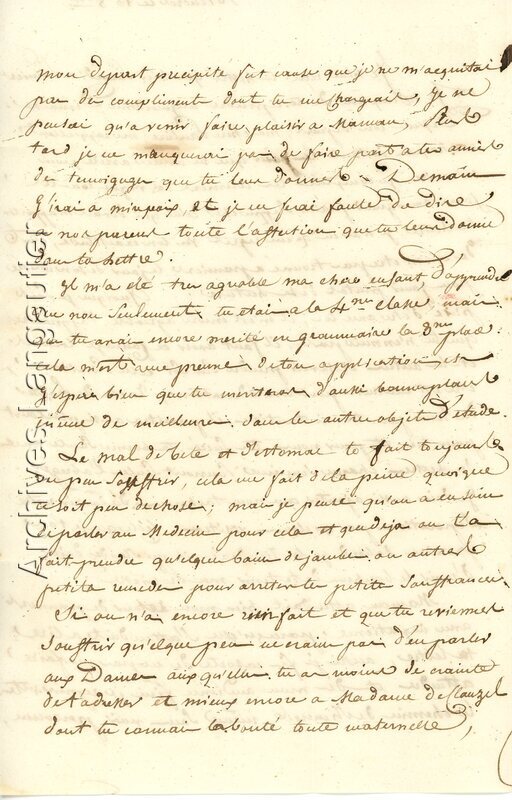 mon depart precipité fut cause que je ne m'acquitai
pas du compliment dont tu me chargeait, je ne
pensai qu'a venir faire plaisir a Maman, Plus
tard je ne manquerai pas de faire part a tes amies
du temoignage que tu leur donnes. Demain
J'irai a mirepoix, et je ne ferai faute de dire
a nos parens toute l'affection que tu leur donne
dans ta lettre.
Il m'a été tres agreable ma chere enfant, d'apprendre
que non seulement, tu etais a la 4me classe, mais
que tu avais encore merité en grammaire la 3me place:
cela m'est une preuve de ton application, et
J'espere bien que tu meriteras d'aussi bonnes places
même de meilleures dans les autres objets d'étude.
Le mal de tete et d'estomac te fait toujours
un peu souffrir, cela me fait de la peine quoique
ce soit peu de chose; mais je pense qu'on a eu soin
de parler au Medecin pour cela et que deja on t'a
fait prendre quelques bains de jambes ou autres
petits remedes pour arreter les petites souffrances.
Si on n'a encore rien fait et que tu reviennes
souffrir quelque peu ne crains pas d'en parler
aux Dames auxquelles tu as moins de crainte
de t'adresser et mieux encore a Madame
dont tu connais la bonté toute maternelle,
Archives Langautier